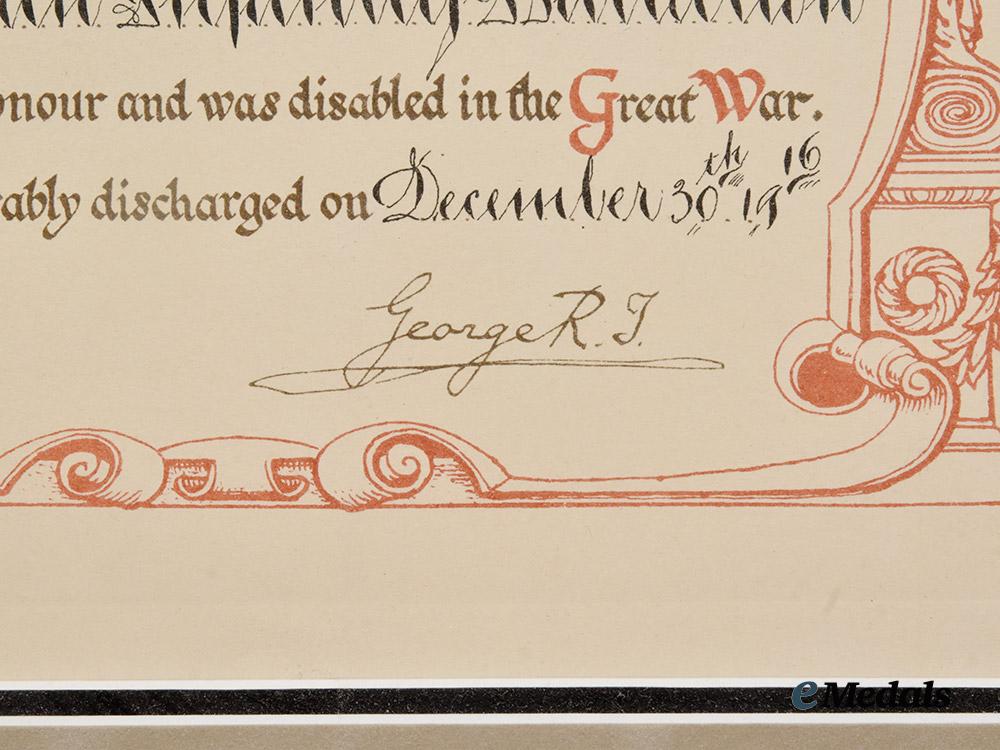 Infantry Battalion
onour and was disabled in the Great War.
ably discharged on December 30th 1916
George R. I.
eMedals